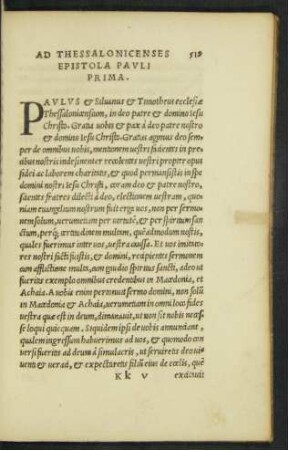 AD THESSALONICENSES 519
EPISTOLA PAVLI
PRIMA.
PAVLVS & Siluanus & Timotheus ecclesiæ
Thessalonicensium, in deo patre & domino Iesu
Christo. Gratia uobis & pax à deo patre nostro
& domino Iesu Christo. Gratias agimus deo sem
per de omnibus uobis, mentionem uestri facientes in pre
cibus nostris indesinenter recolentes uestri propter opus
fidei ac laborem charitatis, & quod permansistis in spe
domini nostri Iesu Christi, coram deo & patre nostro,
scientes fratres dilecti à deo, electionem uestram, quo-
niam euangelium nostrum fuit erga uos, non per sermo-
nem solum, uerumetiam per uirtutē, & per spiritum san
ctum, perq; certitudinem multam, quēadmodum nostis,
quales fuerimus inter uos, uestra causa. Et uos imitato
res nostri facti fuistis, & domini, recipientes sermonem
cum afflictione multa, cum gaudio spiritus sancti, adeo ut
fueritis exemplo omnibus credentibus in Macedonia, et
Achaia. A uobis enim personuit sermo domini, non solū
in Macedonia & Achaia, uerumetiam in omni loco fides
uestra quæ est in deum, dimanauit, ut non sit nobis neces-
se loqui quicquam. Siquidem ipsi de uobis annunciant,
qualem ingressum habuerimus ad uos, & quomodo con
uersi fueritis ad deum à simulacris, ut seruiretis deo ui
uenti & uero, & expectaretis filiū eius de cœlis, quē
K k v excitauit